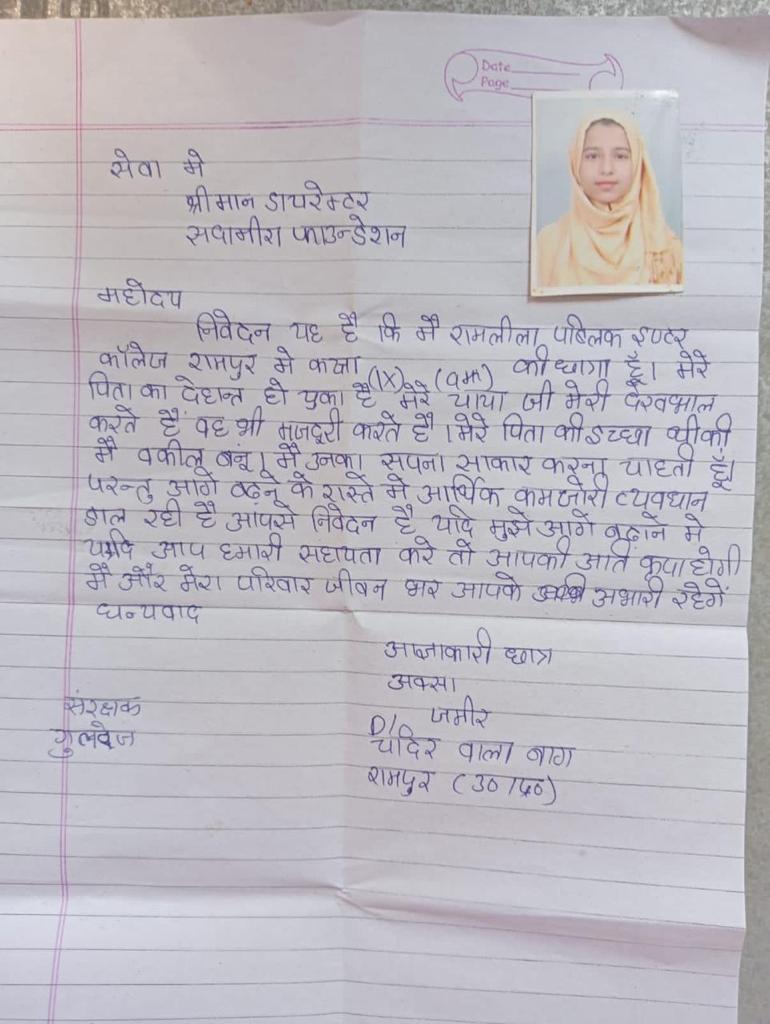 Date
Page
सेवा मे
श्रीमान डायरेक्टर
सवामीरा फाउन्डेशन
महोदय
निवेदन यह है कि मै रामलीला पब्लिक इण्टर
कॉलेज रामपुर मे कक्षा (IX) (9th) की छागा हूँ। मेरे
पिता का देहान्त हो चुका है मेरे चाचा जी मेरी देखभाल
करते है वह भी मजदूरी करते है। मेरे पिता की इच्छा थी की
मै वकील बनू। मै उनका सपना साकार करना चाहती हूँ।
परन्तु आगे बढ़ने के रास्ते मे आर्थिक कमजोरी व्यवधान
डाल रही है आपसे निवेदन है यदि मुझे आगे बढ़ाने मे
यदि आप हमारी सहायता करे तो आपकी अति कृपा होगी
मै और मेरा परिवार जीवन भर आपके अभारी रहेगें
धन्यवाद
आज्ञाकारी छात्र
अक्सा
D/ जमीर
संरक्षक
गुलवेज
वाला बाग
रामपुर (उ० प्र०)